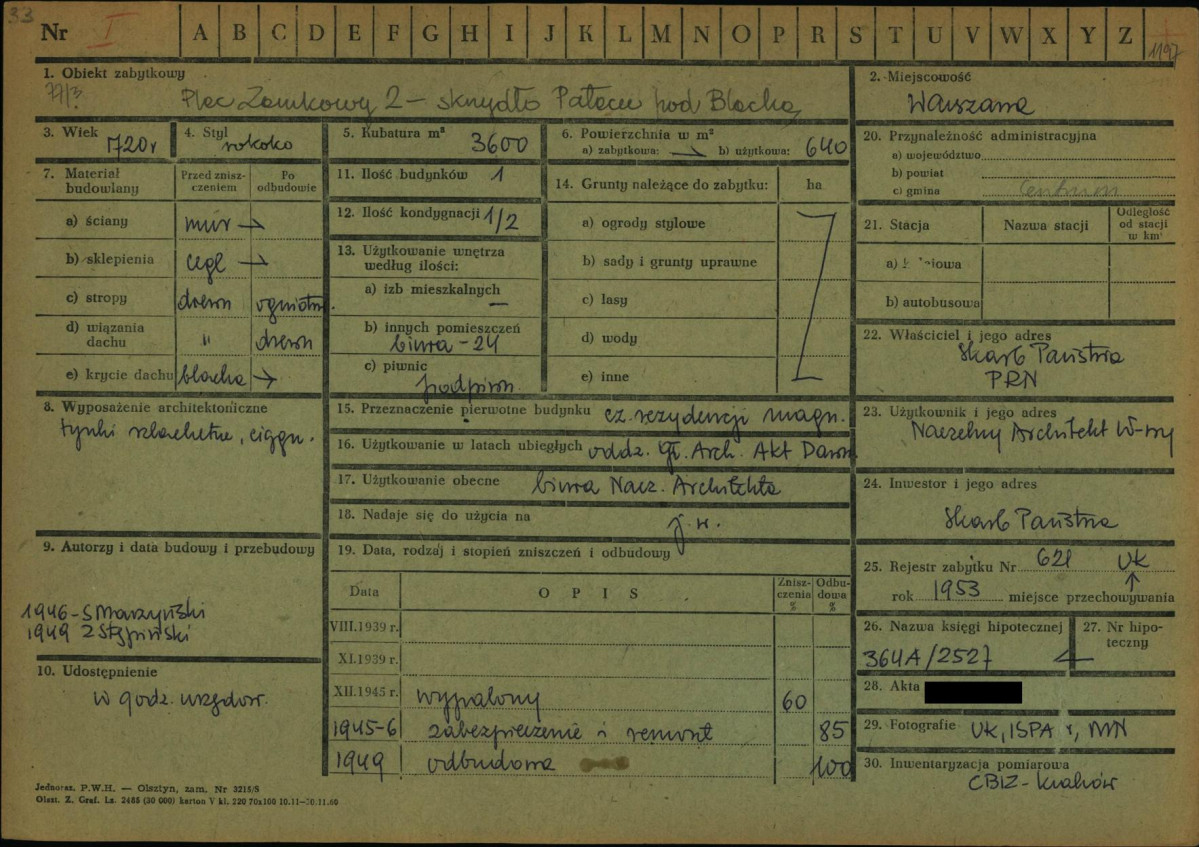 33
Nr I A B C D E F G H I J K L M N O P R S T U V W X Y Z
1197
1. Obiekt zabytkowy
77/3 Plac Zamkowy 2 – skrzydło Pałacu pod Blachą
2. Miejscowość
Warszawa
3. Wiek 1720r
4. Styl rokoko
5. Kubatura m³ 3600
6. Powierzchnia w m²
a) zabytkowa: → b) użytkowa: 640
20. Przynależność administracyjna
a) województwo
b) powiat
c) gmina Centrum
7. Materiał budowlany
Przed zniszczeniem
Po odbudowie
a) ściany mur →
b) sklepienia cegl →
c) stropy drewn ogniotrw.
d) wiązania dachu " drewn
e) krycie dachu blacha →
11. Ilość budynków 1
12. Ilość kondygnacji 1/2
13. Użytkowanie wnętrza według ilości:
a) izb mieszkalnych —
b) innych pomieszczeń
biura – 24
c) piwnic
podpiwn.
14. Grunty należące do zabytku: ha
a) ogrody stylowe
b) sady i grunty uprawne
c) lasy
d) wody
e) inne
21. Stacja Nazwa stacji Odległość od stacji w km
a)
b) autobusowa
22. Właściciel i jego adres
Skarb Państwa
PRN
8. Wyposażenie architektoniczne
tynki szlachetne, ciągn.
15. Przeznaczenie pierwotne budynku cz. rezydencji magn.
16. Użytkowanie w latach ubiegłych oddz. Gł. Arch. Akt Dawn
17. Użytkowanie obecne biura Nacz. Architekta
18. Nadaje się do użycia na j.w.
23. Użytkownik i jego adres
Naczelny Architekt W-wy
24. Inwestor i jego adres
Skarb Państwa
9. Autorzy i data budowy i przebudowy
1946 – S Marzyński
1949 Z Stępiński
10. Udostępnienie
w godz. urzędow.
19. Data, rodzaj i stopień zniszczeń i odbudowy
Data OPIS Zniszczenia % Odbudowa %
VIII.1939 r.
XI.1939 r.
XII.1945 r. wypalony 60
1945-6 zabezpieczenie i remont 85
1949 odbudowa 100
25. Rejestr zabytku Nr 621 UK
rok 1953 miejsce przechowywania
26. Nazwa księgi hipotecznej
364A/2527
27. Nr hipoteczny
28. Akta
29. Fotografie UK, ISPA, MN
30. Inwentaryzacja pomiarowa
CBIZ - Kraków
Jednoraz. P.W.H. — Olsztyn, zam. Nr 3215/S
Olszt. Z. Graf. Lz. 2485 (20 000) karton V kl. 220 70x100 10.11—30.11.60